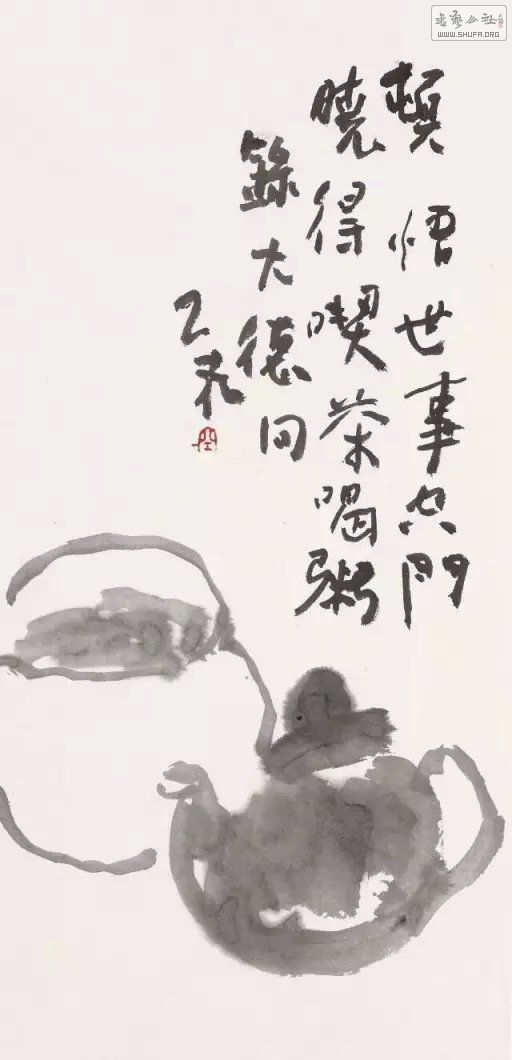 頓悟世事空門
曉得喫茶喝粥
錄大德句
書藝公社
WWW.SHUFA.ORG